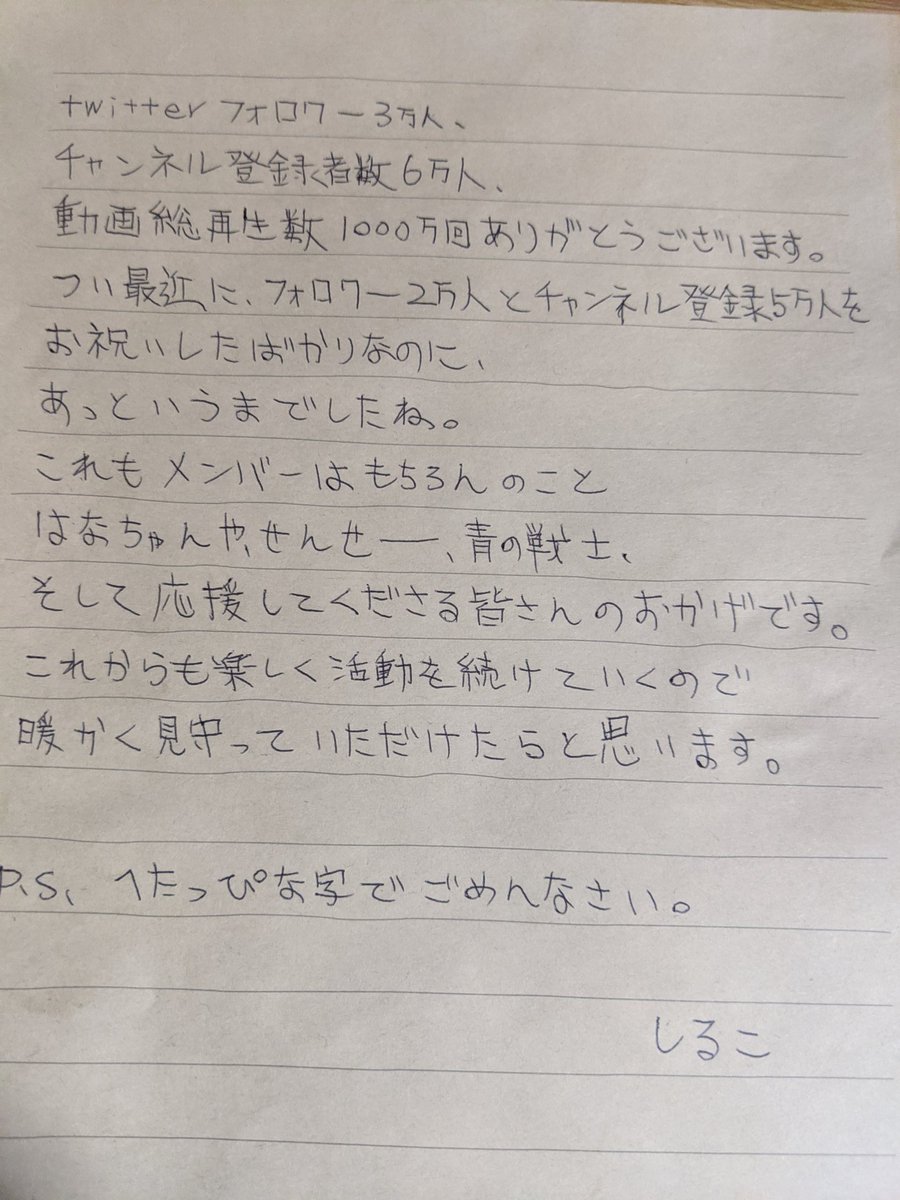 twitterフォロワー3万人、
チャンネル登録者数6万人、
動画総再生数1000万回ありがとうございます。
つい最近に、フォロワー2万人とチャンネル登録5万人を
お祝いしたばかりなのに、
あっというまでしたね。
これもメンバーはもちろんのこと
はなちゃんや、せんせー、青の戦士、
そして応援してくださる皆さんのおかげです。
これからも楽しく活動を続けていくので
暖かく見守っていただけたらと思います。
P.S、へたっぴな字でごめんなさい。
しるこ